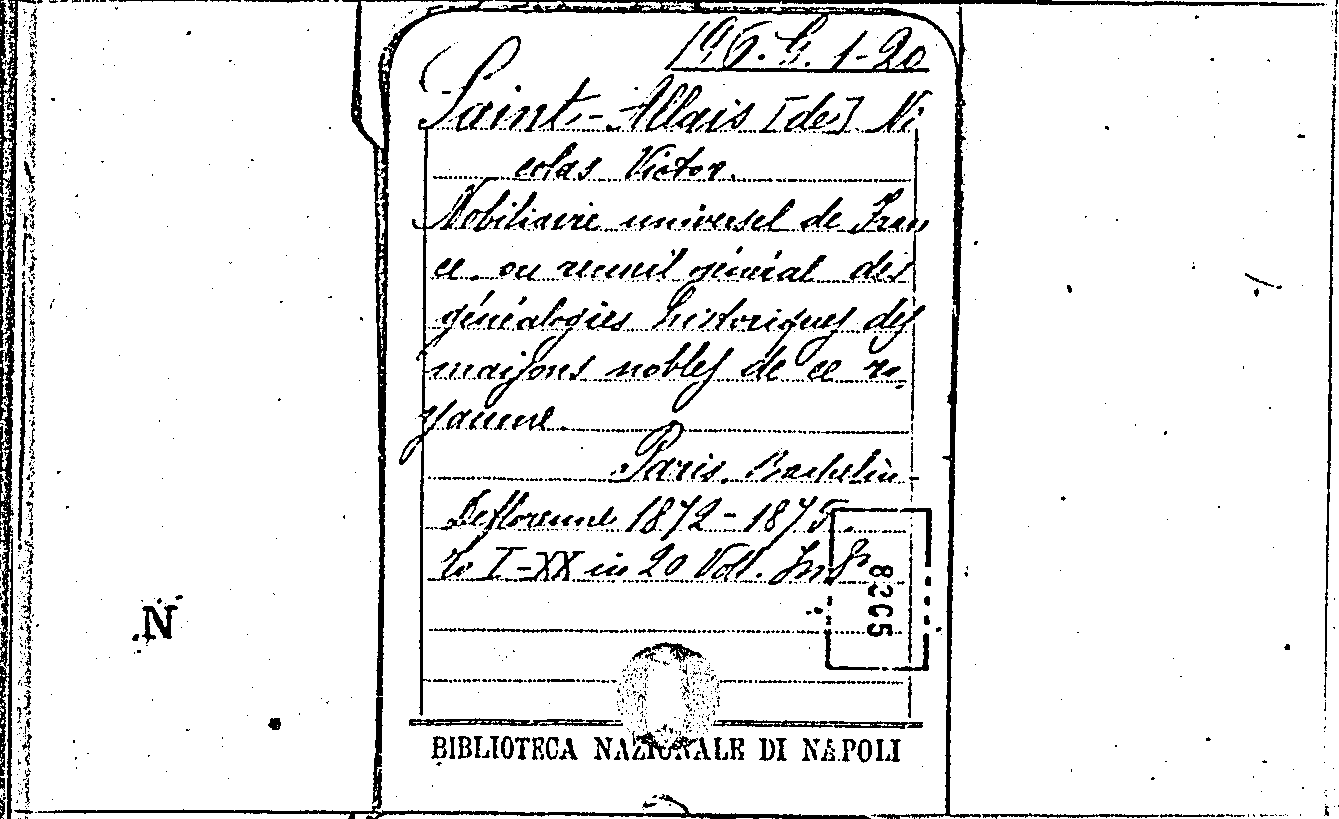 196. G. 1-20
Saint-Allais [de] Ni
colas Victor.
Nobiliaire universel de Fran
ce, ou recueil général des
généalogies historiques des
maisons nobles de ce ro-
yaume.
Paris, Bachelin-
Deflorenne 1872-1875.
To I-XX in 20 Voll. In 8º
8205
N
BIBLIOTECA NAZIONALE DI NAPOLI